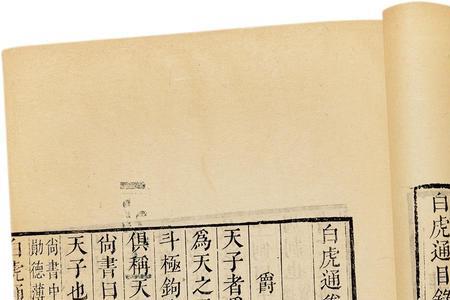 白虎通目錄
白虎通
爵
天子者
爲天之
斗極鉤
俱稱天
尙書曰
天子也
尙書中
勛德薄
白虎通